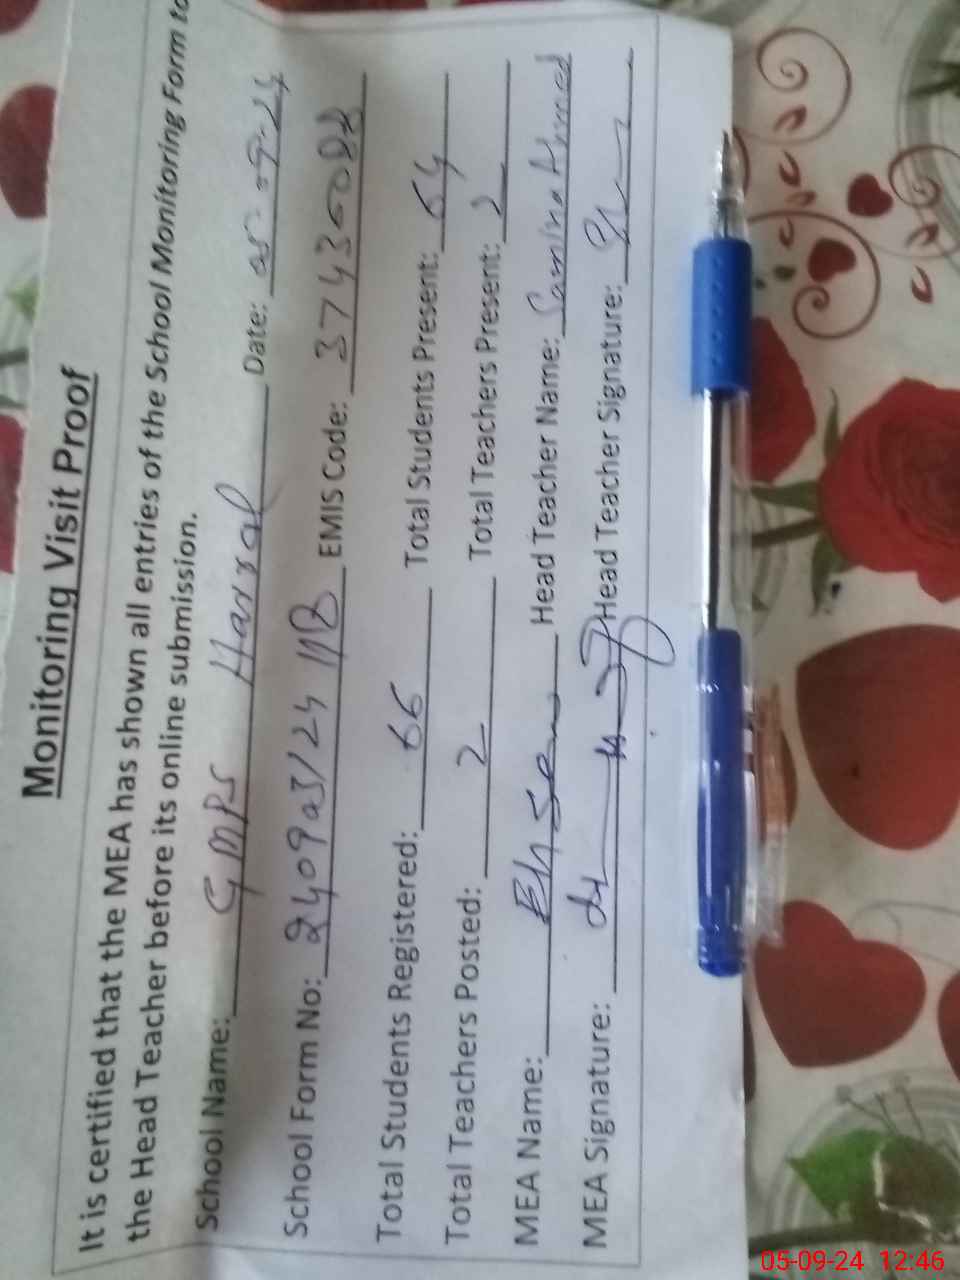 Monitoring Visit Proof
It is certified that the MEA has shown all entries of the School Monitoring Form to
the Head Teacher before its online submission.
School Name: GMPS Harral Date: 05-09-24
School Form No: 240903/24 MB EMIS Code: 37435088
Total Students Registered: 66 Total Students Present: 64
Total Teachers Posted: 2 Total Teachers Present: 2
MEA Name: Ehsan Head Teacher Name: Ahmed
MEA Signature: Head Teacher Signature:
05-09-24 12:46